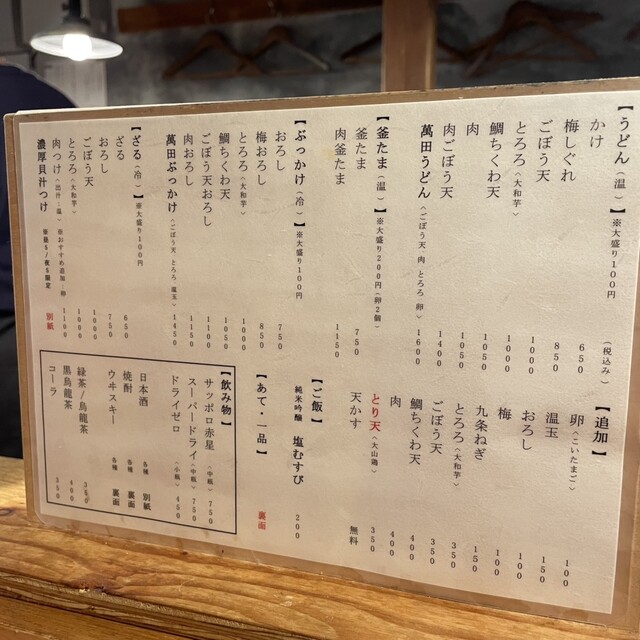 【うどん(温)】※大盛り100円 (税込み)
かけ 650
梅しぐれ 850
ごぼう天 1000
とろろ(大和芋) 1000
鯛ちくわ天 1050
肉 1050
肉ごぼう天 1400
萬田うどん(ごぼう天 肉 とろろ 卵) 1600
【釜たま(温)】※大盛り200円(卵2個)
釜たま 750
肉釜たま 1150
【ぶっかけ(冷)】※大盛り100円
おろし 750
梅おろし 850
とろろ(大和芋) 1000
鯛ちくわ天 1050
ごぼう天おろし 1100
肉おろし 1150
萬田ぶっかけ(ごぼう天 とろろ 温玉) 1450
【ざる(冷)】※大盛り100円
ざる 650
おろし 750
ごぼう天 1000
とろろ(大和芋) 1000
肉つけ(出汁:温) ※おすすめ追加:卵 1100
濃厚貝汁つけ ※昼5/夜5限定 別紙
【追加】
卵(こいたまご) 100
温玉 150
おろし 100
梅 100
九条ねぎ 150
とろろ(大和芋) 350
ごぼう天 350
鯛ちくわ天 400
肉 400
とり天(大山鶏) 350
天かす 無料
【ご飯】
純米吟醸 塩むすび 200
【あて・一品】 裏面
【飲み物】
サッポロ赤星(中瓶) 750
スーパードライ(中瓶) 750
ドライゼロ(小瓶) 450
日本酒 各種 別紙
焼酎 各種 裏面
ウヰスキー 各種 裏面
緑茶/烏龍茶 380
黒烏龍茶 400
コーラ 350